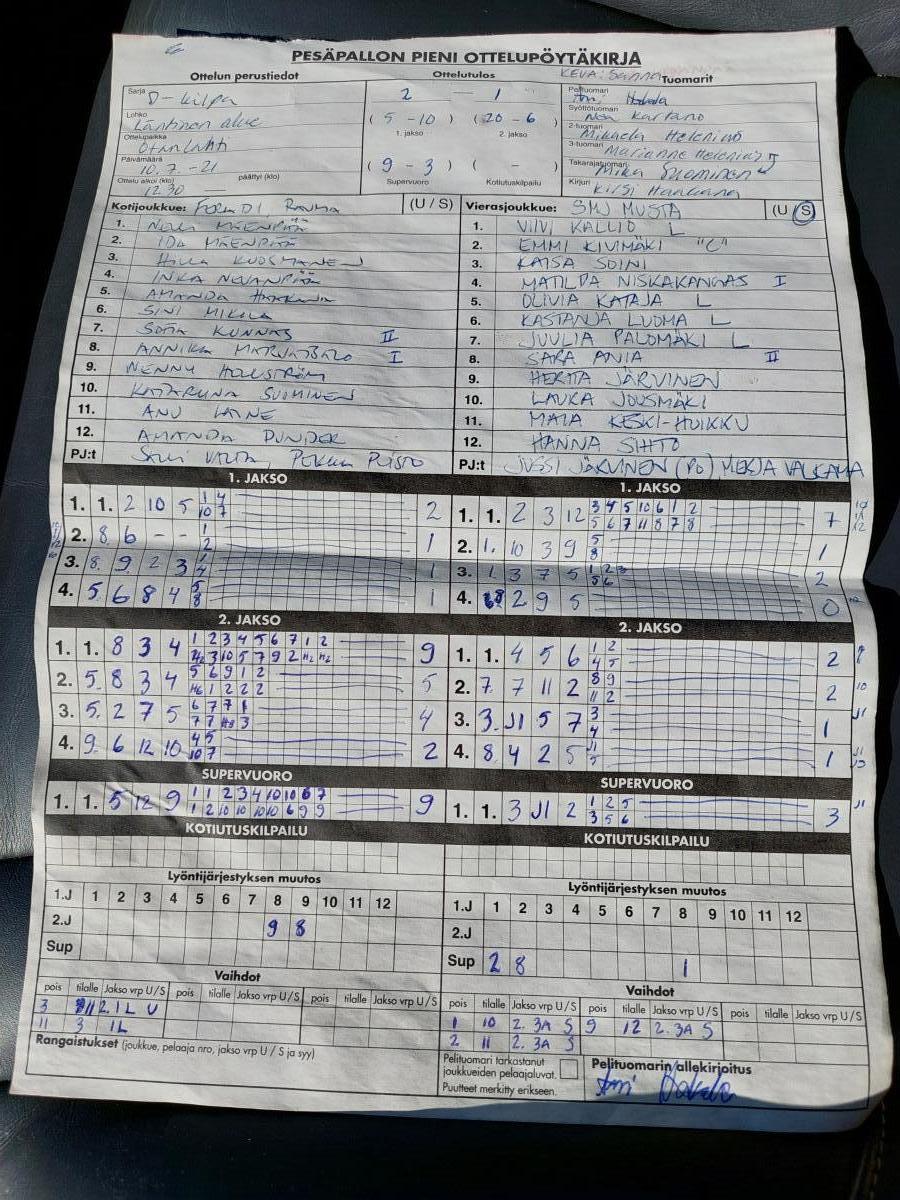 PESÄPALLON PIENI OTTELUPÖYTÄKIRJA
Ottelun perustiedot
Ottelutulos
KEVA: Sanna
Tuomarit
Sarja D-kilpa
2 — 1
Pelituomari
Lohko Läntinen alue
( 5 - 10 ) ( 20 - 6 )
Syöttötuomari Noa Kartano
1. jakso 2. jakso
2-tuomari Mikaela Helenius
Ottelupaikka Otanlahti
3-tuomari Marianne Helenius
Päivämäärä 10.7.-21
( 9 - 3 ) ( - )
Takarajatuomari Mika Suominen
Ottelu alkoi (klo) 12.30 päättyi (klo)
Supervuoro Kotiutuskilpailu
Kirjuri Kirsi
Kotijoukkue: Fera D1, Rauma (U / S)
Vierasjoukkue: SMJ MUSTA (U / S)
1. NOORA MÄENPÄÄ
1. VILVI KALLIO L
2. IDA MÄENPÄÄ
2. EMMI KIVIMÄKI "C"
3. HILLA KUOSMANEN
3. KAISA SOINI
4. INKA NEVANPÄÄ
4. MATILDA NISKAKANGAS I
5. AMANDA
5. OLIVIA KATAJA L
6. SINI MIKOLA
6. KASTANJA LUOMA L
7. SOFIA KUNNAS II
7. JUULIA PALOMÄKI L
8. ANNIKA I
8. SARA ANIA II
9. NENNY HOLLSTRÖM
9. HERTTA JÄRVINEN
10. KATARIINA SUOMINEN
10. LAURA JOUSMÄKI
11. ANU LAINE
11. MAIA KESKI-HUIKKU
12. AMANDA DUNDER
12. HANNA SIHTO
PJ:t PEKKA
PJ:t JUSSI JÄRVINEN (PO) MERJA VALKAMA
1. JAKSO
1. JAKSO
1. 1. 2 10 5 1 4 2
10 7
1. 1. 2 3 12 3 4 5 10 6 1 2 7
5 6 7 11 8 7 8
2. 8 6 - - 1 1
2
2. 1. 10 3 9 5 1
8
3. 8. 9 2 3 1 1
4
3. 1 3 7 5 1 2 3 2
5 6
4. 5 6 8 4 5 1
8
4. 2 9 5 0
2. JAKSO
2. JAKSO
1. 1. 8 3 4 1 2 3 4 5 6 7 1 2 9
1. 1. 4 5 6 1 2 2
4 5
2. 5. 8 3 4 5 6 9 1 2 5
H6 1 2 2 2
2. 7. 7 11 2 8 9 2
11 2
3. 5. 2 7 5 6 7 7 1 4
3. 3. J1 5 7 3 1
4
4. 9. 6 12 10 4 5 2
10 7
4. 8. 4 2 5 J1 1
5
SUPERVUORO
SUPERVUORO
1. 1. 5 12 9 1 1 2 3 4 10 10 6 7 9
1 2 10 10 10 10 6 9 9
1. 1. 3 J1 2 1 2 5 3
3 5 6
KOTIUTUSKILPAILU
KOTIUTUSKILPAILU
Lyöntijärjestyksen muutos
Lyöntijärjestyksen muutos
1.J 1 2 3 4 5 6 7 8 9 10 11 12
1.J 1 2 3 4 5 6 7 8 9 10 11 12
2.J 9 8
2.J
Sup
Sup 2 8 1
Vaihdot
Vaihdot
pois tilalle Jakso vrp U/S pois tilalle Jakso vrp U/S pois tilalle Jakso vrp U/S
pois tilalle Jakso vrp U/S pois tilalle Jakso vrp U/S pois tilalle Jakso vrp U/S
3 11 2.1L U
1 10 2. 3A S 9 12 2. 3A S
11 3 1L
2 11 2. 3A S
Rangaistukset (joukkue, pelaaja nro, jakso vrp U / S ja syy)
Pelituomari tarkastanut
joukkueiden pelaajaluvat.
Puutteet merkitty erikseen.
Pelituomarin allekirjoitus